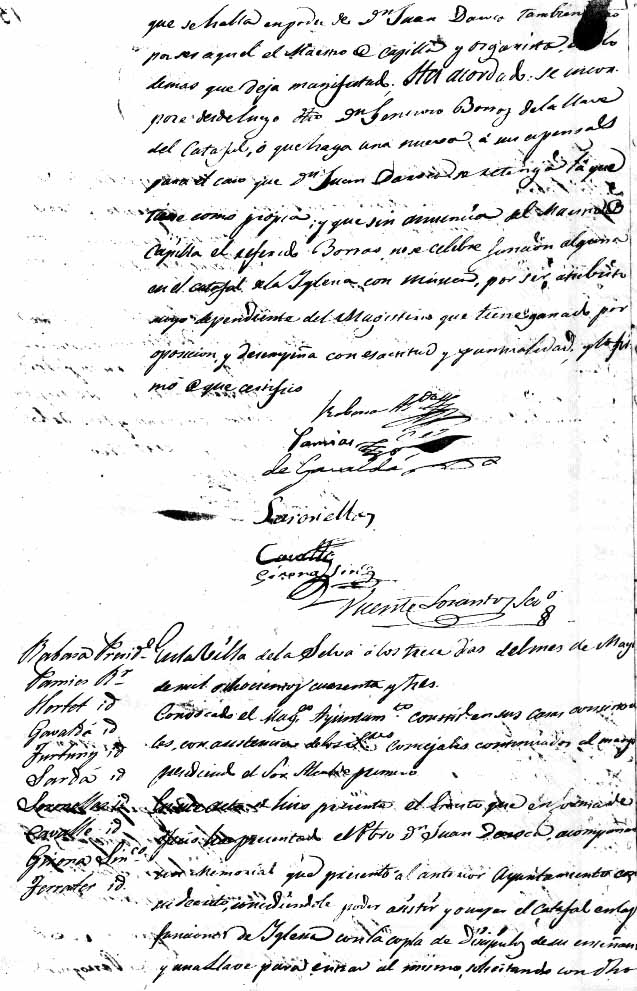 que se halla en poder de Dn Juan Dauco tambien
por ser aquel el Maestro de Capilla y Organista, de lo
demas que deja manifestado. Ha acordado: se incor-
pore desde luego dho Dn Borras de la llave
del Catafal, ó que haga una nueva á sus expensas
para el caso que Dn Juan se retenga la que
tiene como propia, y que sin anuencia del Maestro de
Capilla el referido Borras no se celebre funcion alguna
en el catafal de la Iglesia con musica, por ser atributo
suyo dependiente del Magisterio que tiene ganado por
oposicion, y desempeña con esactitud y puntualidad, y lo fir-
mó de que certifico
Rabasa
Pamies
de Gavaldá
Savonella
Cavallé
Girona Sinco
Vicente Soranto, Scio
Rabasa Presidte
Pamies Rr
Hortot id
Gavaldá id
Furtuny id
Sardá id
id
Cavallé id
Girona Sinco
Ferrater id
En la Villa de la Selva á los trece dias del mes de Mayo
de mil ochocientos cuarenta y tres.
Convocado el Magco Ayuntamto constitl en sus casas consistoria-
les, con asistencia de los Sres concejales continuados al margen
presidiendo el Sor Alcalde primero
se hizo presente el Escrito que en forma de
presentado el Pbro Dn Juan acompañan-
un Memorial que presentó al anterior Ayuntamiento con
su decreto concediendole poder asistir y ocupar el Catafal en las
funciones de Iglesia con la copla de Discipulos de su enseñanza
y una llave para entrar al mismo, solicitando con dho